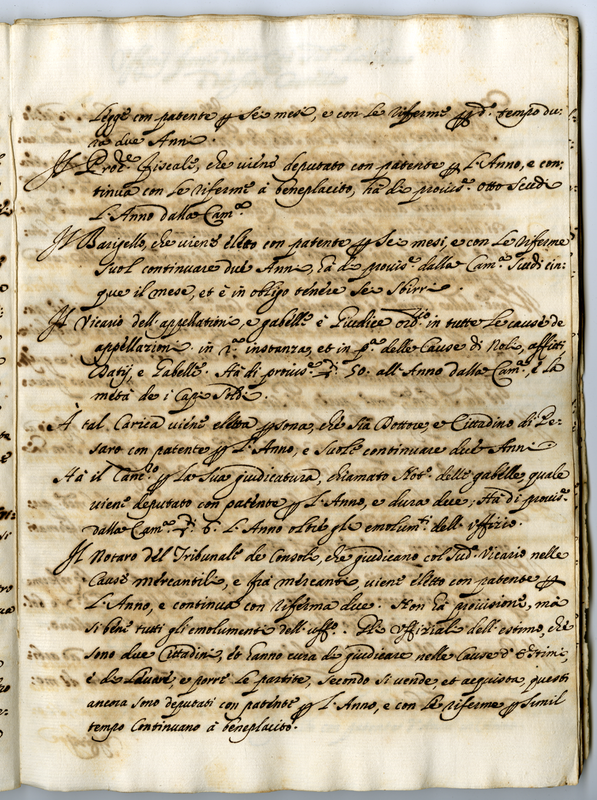 Legge con patente p Sei mesi, e con le rifferme p d.º tempo du:
ra due Anni.
Il Prod.e Fiscale, che viene deputato con patente p l'Anno, e con:
tinua con le rifferme à beneplacito, hà di provis.e otto Scudi
l'Anno dalla Cam.a
Il Barigello, che viene eletto con patente p Sei mesi, e con le rifferme
suol continuare due Anni, hà di provis.e dalla Cam.a Scudi cin:
que il mese, et è in obligo tenere sei Sbirri.
Il Vicario dell'appellationi, e gabelle è Giudice ord.rio in tutte le cause de
appellazioni in 2.a instanza, et in p.a delle Cause di Noli, affitti
Datij, e Gabelle. Hà di provis.e 50. all'Anno dalla Cam.a, e la
metà de i Capi Soldi.
À tal Carica viene eletta psona, che sia Dottore, e Cittadino di Pe:
saro con patente p l'Anno, e suole continuare due Anni.
Hà il Canc.re p la sua giudicatura, chiamato Not.o delle gabelle quale
viene deputato con patente p l'Anno, e dura due; Hà di provis.e
dalla Cam.a 6. l'Anno oltre gli emolum.ti dell'Uffizio.
Il Notaro del Tribunale de Consoli, che giudicano col sud.o Vicario nelle
Cause mercantili, e frà mercanti, viene eletto con patente p
l'Anno, e continua con rifferma due. Non hà provisione, mà
si bene tutti gli emolumenti dell'uff.o. Gli Uffiziali dell'estimo, che
sono due Cittadini, et hanno cura di giudicare nelle Cause d'Estimi,
e di levare, e porre le partite, secondo si vende, et acquista, questi
ancora sono deputati con patente p l'Anno, e con le rifferme p simil
tempo continuano à beneplacito.